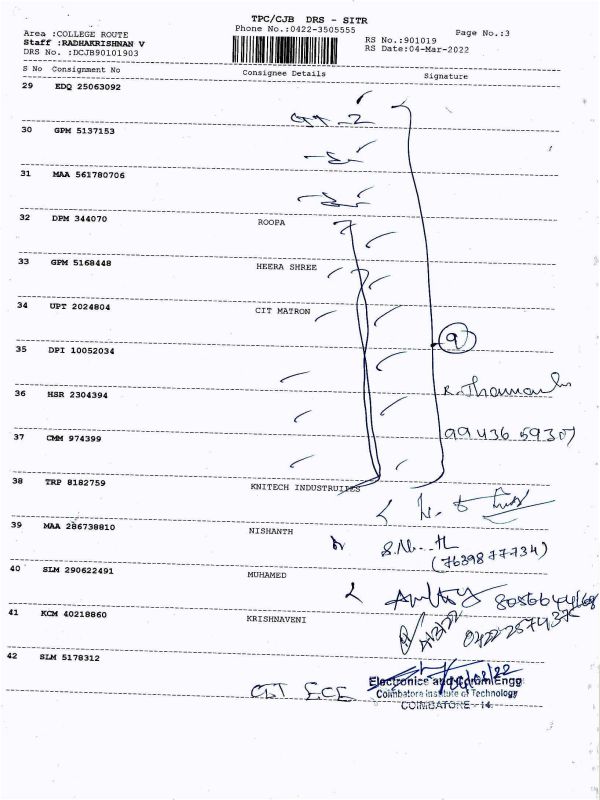 TPC/CJB DRS - SITR
Area :COLLEGE ROUTE
Phone No.:0422-3505555
Page No.:3
Staff :RADHAKRISHNAN V
RS No.:901019
DRS No. :DCJB90101903
RS Date:04-Mar-2022
S No Consignment No Consignee Details Signature
29 EDQ 25063092
30 GPM 5137153
31 MAA 561780706
32 DPM 344070 ROOPA
33 GPM 5168448 HEERA SHREE
34 UPT 2024804 CIT MATRON
9
35 DPI 10052034
36 HSR 2304394
99436 59307
37 CMM 974399
38 TRP 8182759 KNITECH INDUSTRUIIES
39 MAA 286738810 NISHANTH
(7639877734)
40 SLM 290622491 MUHAMED
41 KCM 40218860 KRISHNAVENI
42 SLM 5178312
CIT ECE
Electronice and Comm Engg
Coimbatore Institute of Technology
COIMBATORE - 14.